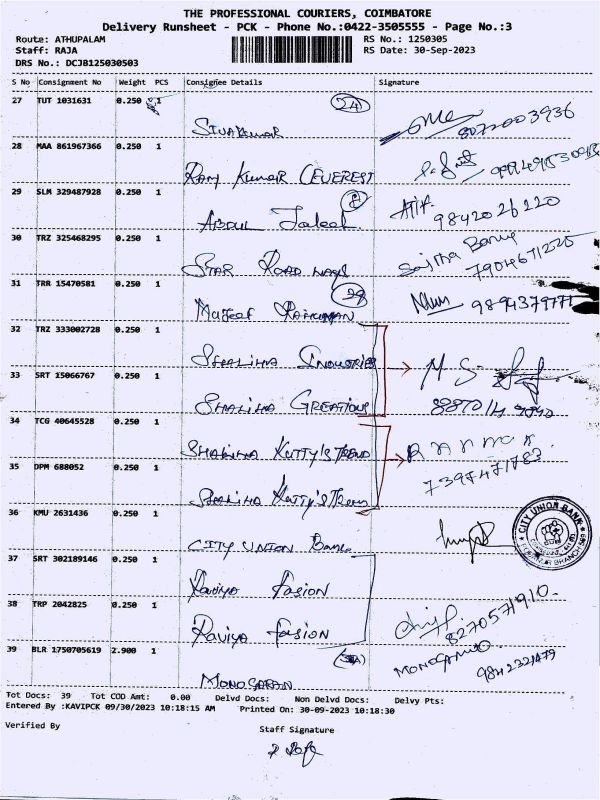 THE PROFESSIONAL COURIERS, COIMBATORE
Delivery Runsheet - PCK - Phone No.:0422-3505555 - Page No.:3
Route: ATHUPALAM RS No.: 1250305
Staff: RAJA RS Date: 30-Sep-2023
DRS No.: DCJB125030503
S No Consignment No Weight PCS Consignee Details Signature
27 TUT 1031631 0.250 1 24
Sivakumar 8072003936
28 MAA 861967366 0.250 1
Ram Kumar (EVEREST
29 SLM 329487928 0.250 1
Abdul Jaleel 9842026220
30 TRZ 325468295 0.250 1
Star Road ways Sajitha Banu 7904671225
31 TRR 15470581 0.250 1
Mujeef Rahuman 9894379777
32 TRZ 333002728 0.250 1
Shaliha Industries M S
33 SRT 15066767 0.250 1
Shaliha Creations
34 TCG 40645528 0.250 1
Shaliha Kutty's Trend 7397471783
35 DPM 688052 0.250 1
Shaliha Kutty's Trend
36 KMU 2631436 0.250 1
City Union Bank CITY UNION BANK
37 SRT 302189146 0.250 1
Kaviya Fasion
38 TRP 2042825 0.250 1
Kaviya Fasion 8270571910.
39 BLR 1750705619 2.900 1
Monogaran 9842321479
Tot Docs: 39 Tot COD Amt: 0.00 Delvd Docs: Non Delvd Docs: Delvy Pts:
Entered By :KAVIPCK 09/30/2023 10:18:15 AM Printed On: 30-09-2023 10:18:30
Verified By Staff Signature